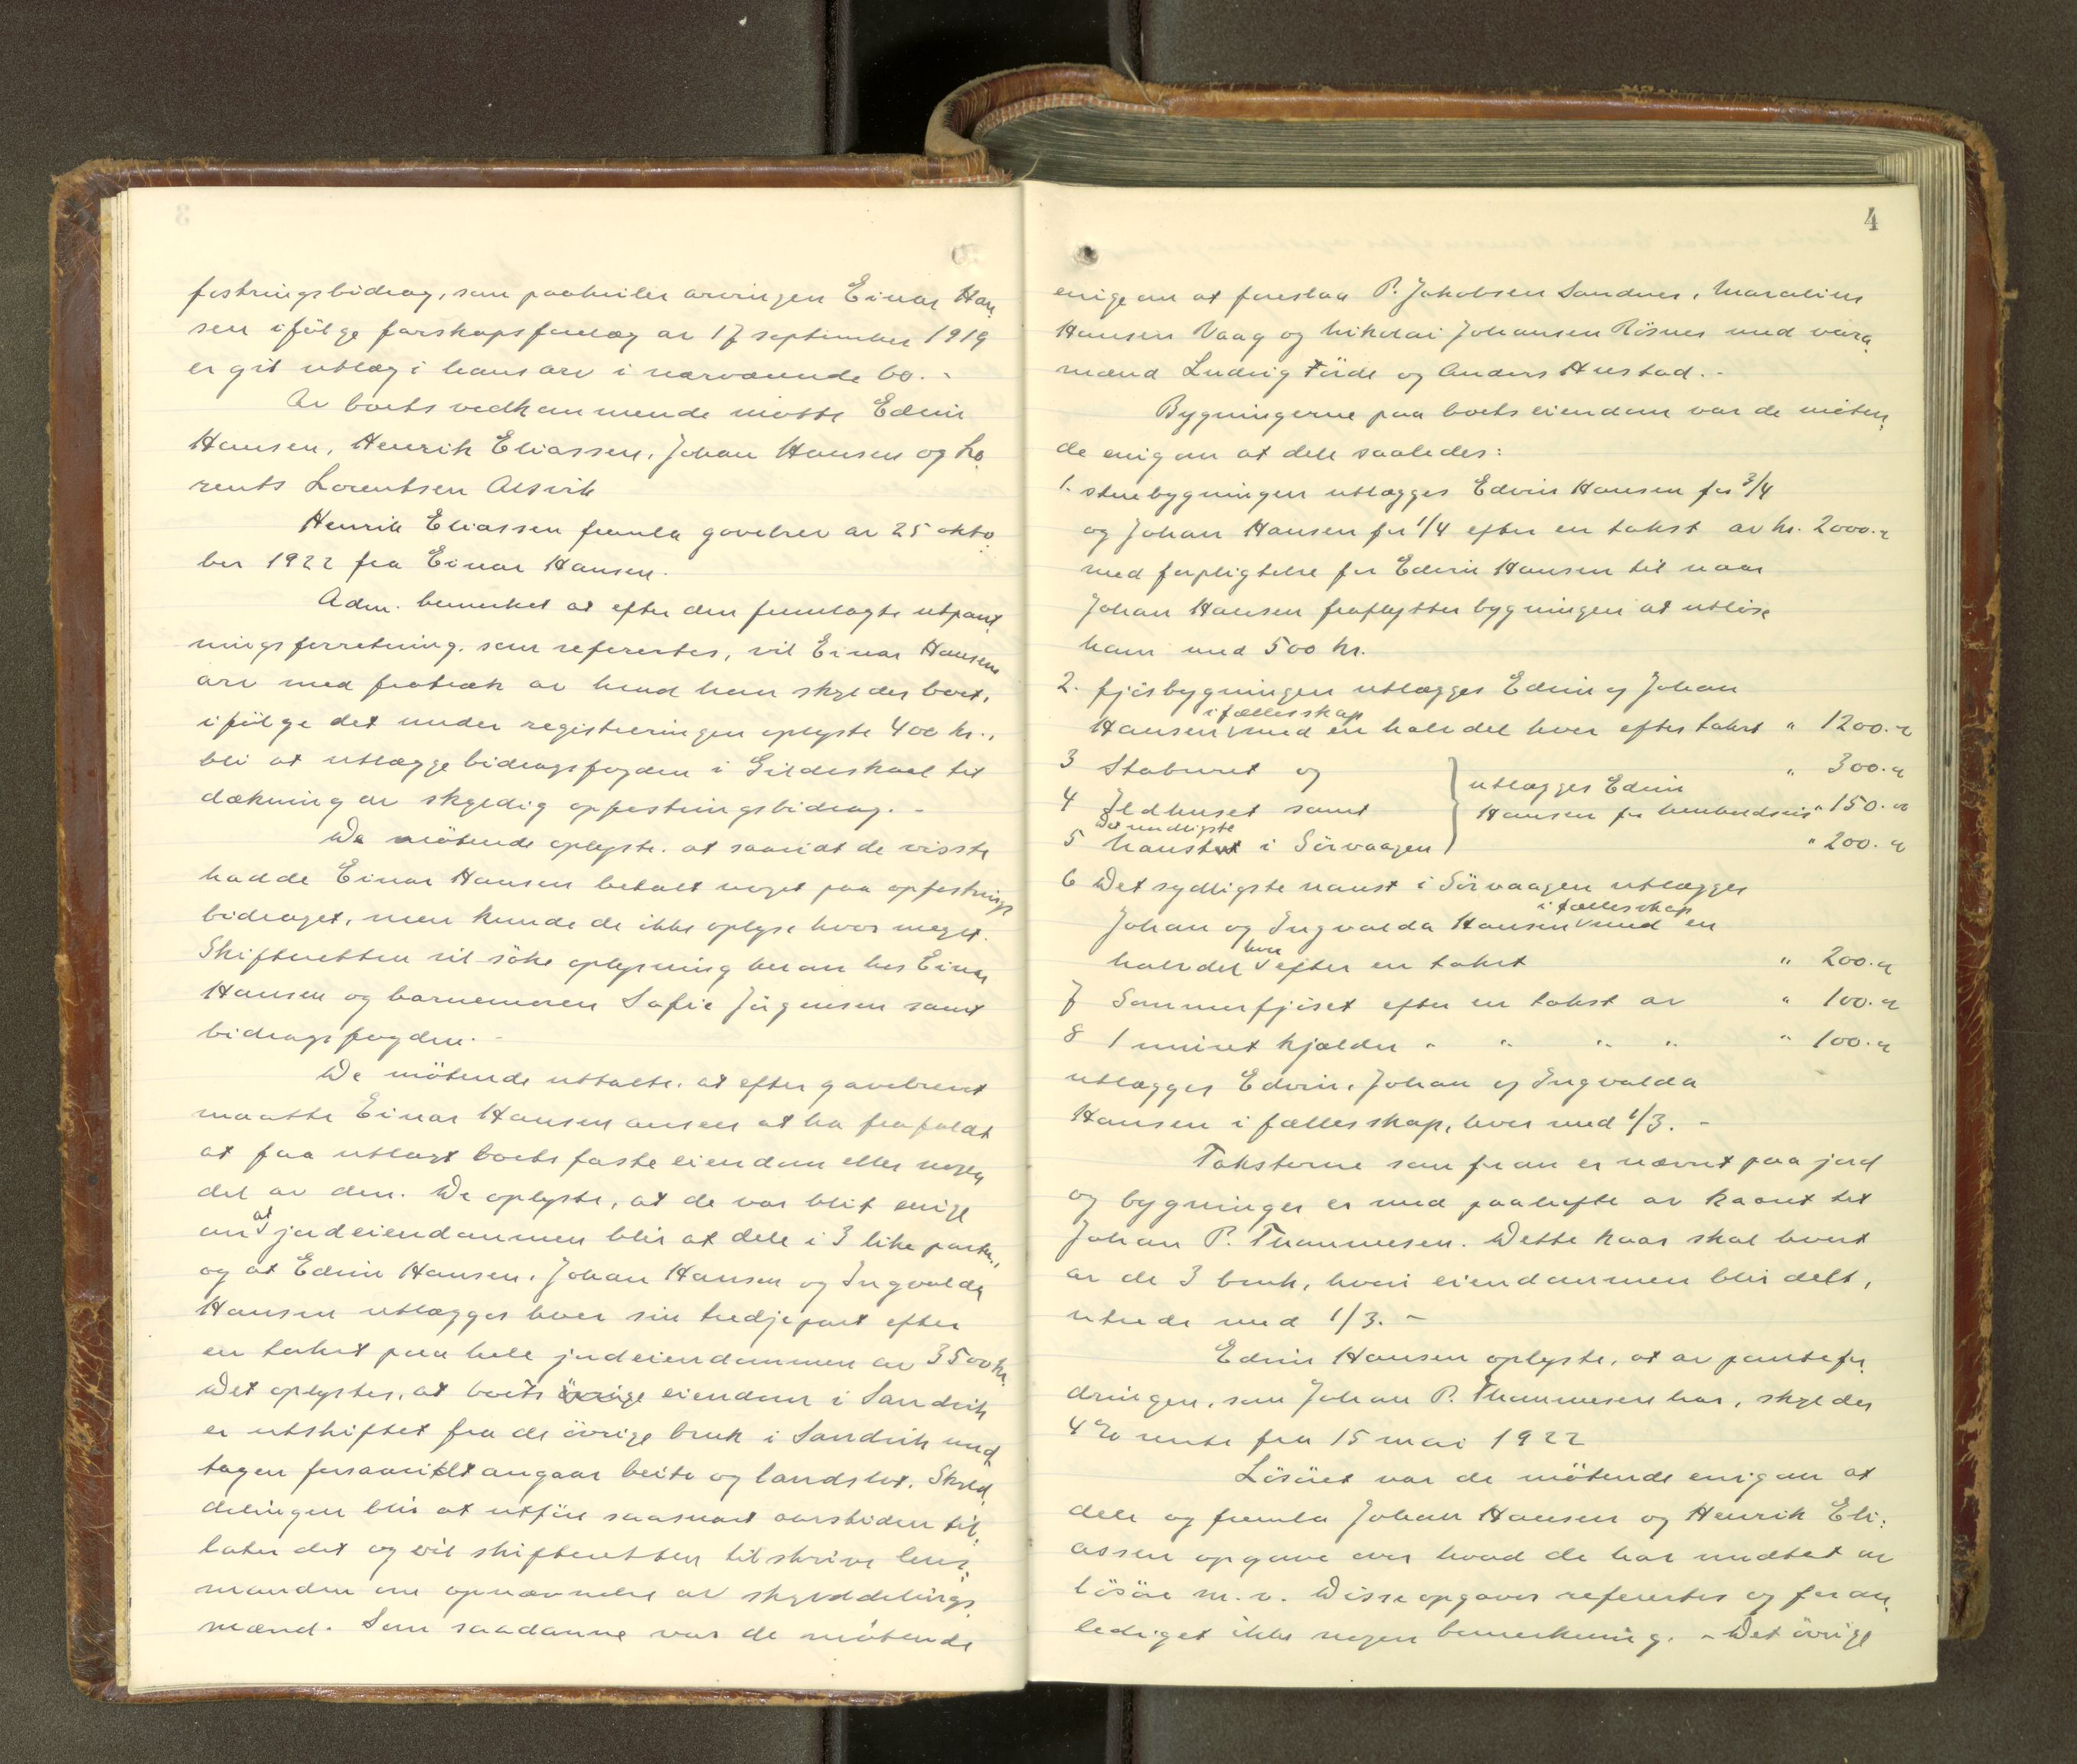 fostringsbidrag, som paahviler arvingen Einar Han
sen ifölge farskapsforelæg av 17 september 1919
er git utlæg i hans arv i nærværende bo. -
Av boets vedkommende mötte Edvin
Hansen, Henrik Eliassen, Johan Hansen og Lo
rents Lorentsen Alsvik
Henrik Eliassen fremla gavebrev av 25 okto
ber 1922 fra Einar Hansen.
Adm. bemerket at efter den fremlagte utpant
ningsforretning, som refertes, vil Einar Hansens
arv med fratræk av hvad han skylder boet,
ifölge det under registreringen oplyste 400 kr.,
bli at utlægge bidragsfogden i Gildeskaal til
dækning av skyldig opfostringsbidrag. -
De mötende oplyste, at saavidt de visste
hadde Einar Hansen betalt noget paa opfostrings
bidraget, men kunde de ikke oplyse hvor meget.
Skifteretten vil söke oplysning herom hos Einar
Hansen og barnemoren Sofie Jörgensen samt
bidragsfogden. -
De mötende uttalte, at efter gavebrevet
maatte Einar Hansen ansees at ha frafaldt
at faa utlagt boets faste eiendom eller nogen
del av den. De oplyste, at de var blit enige
om at jordeiendommen blir at dele i 3 like parter,
og at Edvin Hansen, Johan Hansen og Ingvalda
Hansen utlægges hver sin tredjepart efter
en takst paa hele jordeiendommen av 3500 kr.
Det oplystes, at boets övrige eiendom i Sandvik
er utskiftet fra de övrige bruk i Sandvik und
tagen forsaavidt angaar beite og landslot. Skyld
delingen blir at utföre saasnart aarstiden til
later det og vil skifteretten tilskrive lens
manden om opnævnelse av skylddelings
mænd. Som saadanne var de mötende
4
enige om at foreslaa P. Jakobsen Sandnes, Maralius
Hansen Vaag og Nikolai Johansen Rösnes med vara
mænd Ludvig Förde og Anders Hustad. -
Bygningerne paa boets eiendom var de möten
de enig om at dele saaledes:
1. stuebygningen utlægges Edvin Hansen for 3/4
og Johan Hansen for 1/4 efter en takst av kr. 2000.-
med forpligtelse for Edvin Hansen til naar
Johan Hansen fraflytter bygningen at utlöse
ham med 500 kr.
2. fjösbygningen utlægges Edvin og Johan
Hansen i fællesskap med en halvdel hver efter takst " 1200.-
3 Staburet og " 300.-
4 Ildhuset samt utlægges Edvin Hansen for henholdsvis " 150.-
5 Det nordligste naust i Sörvaagen " 200.-
6 Det sydligste naust i Sörvaagen utlægges
Johan og Ingvalda Hansen i fællesskap med en
halvdel hver efter en takst " 200.-
7 Sommerfjöset efter en takst av " 100.-
8 1 muret kjælder " " " " " 100.-
utlægges Edvin, Johan og Ingvalda
Hansen i fællesskap, hver med 1/3. -
Taksterne som foran er nævnt paa jord
og bygninger er med paahefte av kaaret til
Johan P. Thommesen. Dette kaar skal hvert
av de 3 bruk, hvori eiendommen blir delt,
utrede med 1/3. -
Edvin Hansen oplyste, at av pantefor
dringen, som Johan P. Thommesen har, skyldes
4 % rente fra 15 mai 1922
Lösöret var de mötende enig om at
dele og fremla Johan Hansen og Henrik Eli
assen opgave over hvad de har mottat av
lösöre m. v. Disse opgaver refertes og foran
lediget ikke nogen bemerkning. - Det övrige